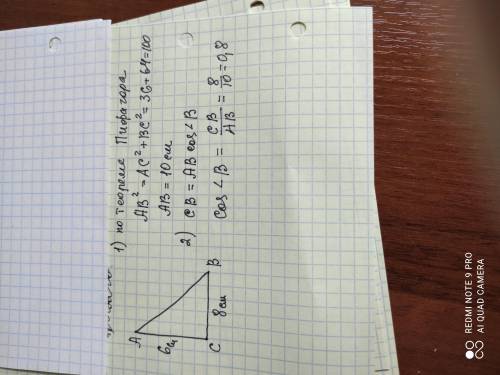 1) по теореме Пифагора
AB² = AC² + BC² = 36 + 64 = 100
AB = 10 см
2) CB = AB cos∠B
cos∠B = CB/AB = 8/10 = 0,8
A
6см
C
8см
B
REDMI NOTE 9 PRO
AI QUAD CAMERA